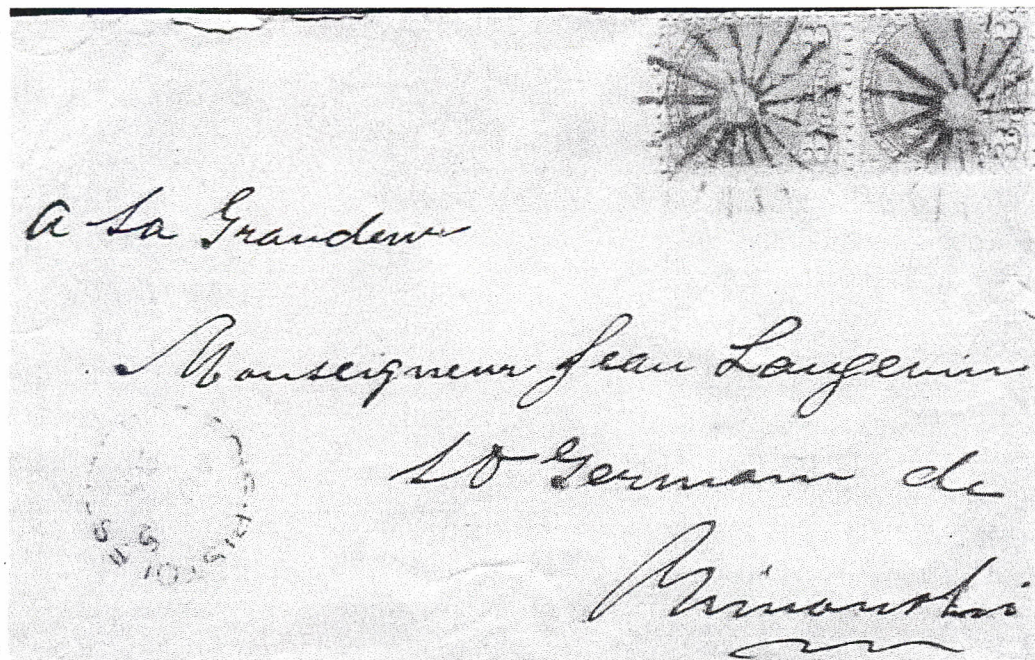 A Sa Grandeur
Monseigneur Jean Langevin
St Germain de
Rimouski